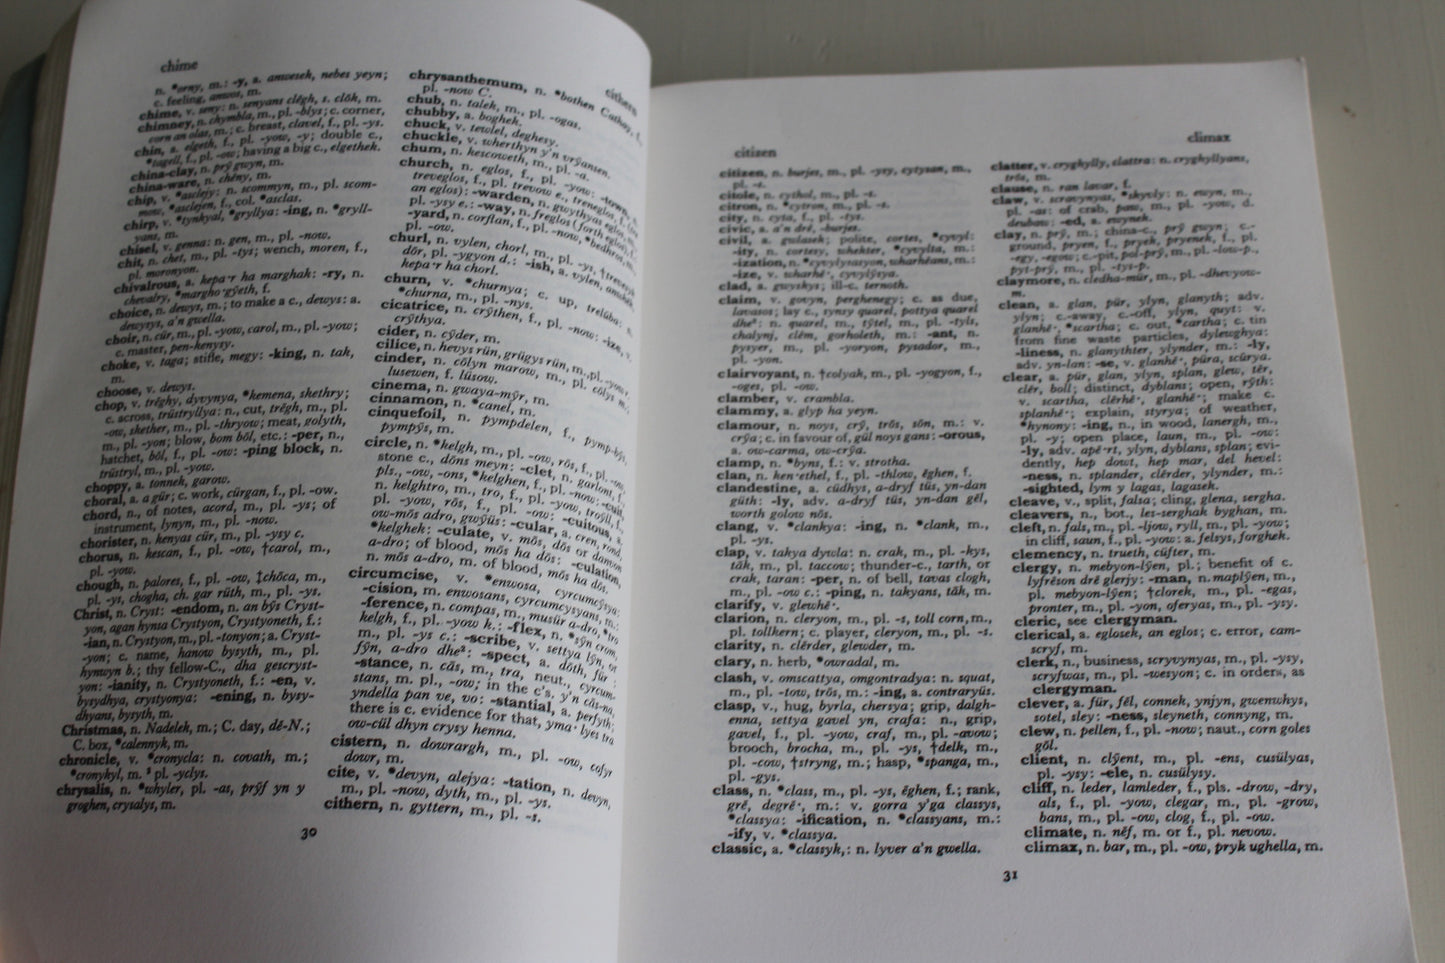 chime
n. *orny, m.: -y, a. anwesek, nebes yeyn;
c. feeling, anwos, m.
chime, v. seny: n. senyans clēgh, s. clōk, m.
chimney, n. chymbla, m., pl. -blys; c. corner,
corn an olas, m.; c. breast, clavel, f., pl. -ys.
chin, a. elgeth, f., pl. -yow, -y; double c.,
*tagell, f., pl. -ow; having a big c., elgethek.
china-clay, n. prȳ gwyn, m.
china-ware, n. chēny, m.
chip, v. *asclejy: n. scommyn, m., pl. scom-
mow, *asclejen, f., col. *asclas.
chirp, v. *tynkyal, *gryllya: -ing, n. *gryll-
yans, m.
chisel, v. genna: n. gen, m., pl. -now.
chit, n. chet, m., pl. -tys; wench, moren, f.,
pl. moronyon.
chivalrous, a. hepa·r ha marghak: -ry, n.
chevalry, *margho·gŷeth, f.
choice, n. dewys, m.; to make a c., dewys: a.
dewysys, a'n gwella.
choir, n. cūr, m., pl. -yow, carol, m., pl. -yow;
c. master, pen-kenysy.
choke, v. taga; stifle, megy: -king, n. tak,
m.
choose, v. dewys.
chop, v. trēghy, dyvynya, *hemena, skethry;
c. across, trūstryllya: n., cut, trēgh, m., pl.
-ow, skether, m., pl. -thryow; meat, golyth,
m., pl. -yon; blow, bom bōl, etc.: -per, n.,
hatchet, bōl, f., pl. -ow: -ping block, n.
trūstryl, m., pl. -yow.
choppy, a. tonnek, garow.
choral, a. a gūr; c. work, cūrgan, f., pl. -ow.
chord, n., of notes, acord, m., pl. -ys; of
instrument, lynyn, m., pl. -now.
chorister, n. kenyas cūr, m., pl. -ysy c.
chorus, n. kescan, f., pl. -ow, †carol, m.,
pl. -yow.
chough, n. palores, f., pl. -ow, ‡chōca, m.,
pl. -ys, chogha, ch. gar rūth, m., pl. -ys.
Christ, n. Cryst: -endom, n. an bȳs Cryst-
yon, agan hynsa Crystyon, Crystyoneth, f.:
-ian, n. Crystyon, m., pl. -tonyon; a. Cryst-
-yon; c. name, hanow bysyth, m., pl.
hynwyn b.; thy fellow-C., dha gescryst-
yon: -ianity, n. Crystyoneth, f.: -en, v.
bysydhya, crystyonya: -ening, n. bysy-
dhyans, bysyth, m.
Christmas, n. Nadelek, m.; C. day, dē-N.;
C. box, *calennyk, m.
chronicle, v. *cronycla: n. covath, m.;
*cronykyl, m. ² pl. -yclys.
chrysalis, n. *whyler, pl. -as, prȳf yn y
groghen, crysalys, m.
30
cithern
chrysanthemum, n. *bothen Cathay, f.,
pl. -now C.
chub, n. talek, m., pl. -ogas.
chubby, a. boghek.
chuck, v. tewlel, deghesy.
chuckle, v. wherthyn y'n vrȳansen.
chum, n. kescoweth, m., pl. -a.
church, n. eglos, f., pl. -yow: -town, n.
treveglos, f., pl. trevow e., treneglos, f. (
an eglos): -warden, n. gwythyas eglos, m.
pl. -ysy e.: -way, n. freglos (forth eglos), f.:
-yard, n. corflan, f., pl. -now, *bedhros, m.,
pl. -ow.
churl, n. vylen, chorl, m., pl. -ys,
dōr, pl. -ygyon d.: -ish, a. vylen,
hepa·r ha chorl.
churn, v. *churnya; c. up, trelūba: n.
*churna, m., pl. -nys.
cicatrice, n. crȳthen, f., pl. -now: -ize, v.
crȳthya.
cider, n. cȳder, m.
cilice, n. hevys rūn, grūgys rūn, m., pl. -yow.
cinder, n. cōlyn marow, m., pl. cōlys m.;
lusewen, f. lūsow.
cinema, n. gwaya-mȳr, m.
cinnamon, n. *canel, m.
cinquefoil, n. pympdelen, f., pymp-bȳs,
pympȳs, m.
circle, n. *kelgh, m., pl. -ow, rōs, f., pl. -ow;
stone c., dōns meyn: -clet, n. garlont, f.
pls., -ow, -ons, *kelghen, f., pl. -now: -cuit,
n. kelghtro, m., tro, f., pl. -yow, troyll, f.,
pl. -yow, rōs, f., pl. -ow: -cuitous, a.
ow-mōs adro, gwȳūs: -cular, a. cren, rond,
*kelghek: -culate, v. mōs, dōs or danvon
a-dro; of blood, mōs ha dōs: -culation,
n. mōs a-dro, m. of blood, mōs ha dōs.
circumcise, v. *enwosa, cyrcumcȳsya:
-cision, m. enwosans, cyrcumcysyans, m.:
-ference, n. compas, m., musūr a-dro, *tro
kelgh, f., pl. -yow k.: -flex, n. *sȳn crom,
m., pl. -ys c.: -scribe, v. settya lȳn, or
fȳn, a-dro dhe²: -spect, a. dōth, fūr:
-stance, n. cās, m., tra, neut., cyrcum-
stans, m. pl., -ow; in the c's, y'n cās-na,
yndella pan ve, vo: -stantial, a. perfyth;
there is c. evidence for that, yma· lyes tra
ow-cūl dhyn crysy henna.
cistern, n. dowrargh, m., pl. -ow, cofyr
dowr, m.
cite, v. *devyn, alejya: -tation, n. devyn,
m., pl. -now, dyth, m., pl. -ys.
cithern, n. gyttern, m., pl. -s.
citizen
citizen, n. burjes, m., pl. -ysy, cytysan, m.,
pl. -s.
citole, n. cythol, m., pl. -s.
citron, n. *cytron, m., pl. -s.
city, n. cyta, f., pl. -tys.
civic, a. a'n drē, -burjes.
civil, a. gwlasek; polite, cortes, *cyvyl:
-ity, n. cortesy, whekter, *cyvylta, m.:
-ization, n. *cyvylysasyon, wharhēans, m.:
-ize, v. wharhē·, cyvylȳsya.
clad, a. gwyskys; ill-c. ternoth.
claim, v. govyn, perghenegy; c. as due,
lavasos; lay c., synsy quarel, pottya quarel
dhe²: n. quarel, m., tȳtel, m., pl. -tyls,
chalynj, clēm, gorholeth, m.: -ant, n.
pysyer, m., pl. -yoryon, pysador, m.,
pl. -yon.
clairvoyant, n. †colyak, m., pl. -yogyon, f.,
-oges, pl. -ow.
clamber, v. crambla.
clammy, a. glyp ha yeyn.
clamour, n. noys, crȳ, trōs, sōn, m.: v.
crȳa; c. in favour of, gūl noys gans: -orous,
a. ow-carma, ow-crȳa.
clamp, n. *byns, f.: v. strotha.
clan, n. ken·ethel, f., pl. -thlow, ēghen, f.
clandestine, a. cūdhys, a-dryf tūs, yn-dan
gūth: -ly, adv. a-dryf tūs, yn-dan gēl,
worth golow nōs.
clang, v. *clankya: -ing, n. *clank, m.,
pl. -ys.
clap, v. takya dywla: n. crak, m., pl. -kys,
tāk, m. pl. taccow; thunder-c., tarth, or
crak, taran: -per, n. of bell, tavas clogh,
m., pl. -ow c.: -ping, n. takyans, tāk, m.
clarify, v. glewhē·.
clarion, n. cleryon, m., pl. -s, toll corn, m.,
pl. tollkern; c. player, cleryon, m., pl. -s.
clarity, n. clērder, glewder, m.
clary, n. herb, *owradal, m.
clash, v. omscattya, omgontradya: n. squat,
m., pl. -tow, trōs, m.: -ing, a. contraryūs.
clasp, v., hug, byrla, chersya; grip, dalgh-
enna, settya gavel yn, crafa: n., grip,
gavel, f., pl. -yow, craf, m., pl. -avow;
brooch, brocha, m., pl. -ys, †delk, m.,
pl. -cow, †stryng, m.; hasp, *spanga, m.,
pl. -gys.
class, n. *class, m., pl. -ys, ēghen, f.; rank,
grē, degrē·, m.: v. gorra y'ga classys,
*classya: -ification, n. *classyans, m.:
-ify, v. *classya.
classic, a. *classyk,: n. lyver a'n gwella.
31
climax
clatter, v. cryghylly, clattra: n. cryghyllyans,
trōs, m.
clause, n. ran lavar, f.
claw, v. scravynyas, *skyvly: n. ewyn, m.,
pl. -as: of crab, paw, m., pl. -yow, d.
deubaw: -ed, a. ewynek.
clay, n. prȳ, m.; china-c., prȳ gwyn; c.-
ground, pryen, f., pryek, pryenek, f., pl.
-egy, -egow; c.-pit, pol-prȳ, m., pl. -low-p.,
pyt-prȳ, m., pl. -tys-p.
claymore, n. cledha-mūr, m., pl. -dhevyow-
m.
clean, a. glan, pūr, ylyn, glanyth; adv.
ylyn; c.-away, c.-off, ylyn, quyt: v.
glanhē·, *scartha; c. out, *cartha; c. tin
from fine waste particles, dylewghya:
-liness, n. glanythter, ylynder, m.: -ly,
adv. yn-lan: -se, v. glanhē·, pūra, scūrya.
clear, a. pūr, glan, ylyn, splan, glew, tēr,
clēr, boll; distinct, dyblans; open, rȳth:
v. scartha, clērhē·, glanhē·; make c.
splanhē·; explain, styrya; of weather,
*hynony: -ing, n., in wood, lanergh, m.,
pl. -y; open place, laun, m., pl. -ow:
-ly, adv. apē·rt, ylyn, dyblans, splan; evi-
dently, hep dowt, hep mar, del hevel:
-ness, n. splander, clērder, ylynder, m.:
-sighted, lym y lagas, lagasek.
cleave, v., split, falsa; cling, glena, sergha.
cleavers, n., bot., les-serghak byghan, m.
cleft, n. fals, m., pl. -ljow, ryll, m., pl. -yow;
in cliff, saun, f., pl. -yow: a. felsys, forghek.
clemency, n. trueth, cūfter, m.
clergy, n. mebyon-lȳen, pl.; benefit of c.
lyfrēson drē glerjy: -man, n. maplȳen, m.,
pl. mebyon-lȳen; †clorek, m., pl. -egas,
pronter, m., pl. -yon, oferyas, m., pl. -ysy.
cleric, see clergyman.
clerical, a. eglosek, an eglos; c. error, cam-
scryf, m.
clerk, n., business, scryvynyas, m., pl. -ysy,
scryfwas, m., pl. -wesyon; c. in orders, as
clergyman.
clever, a. fūr, fēl, connek, ynjyn, gwenwhys,
sotel, sley: -ness, sleyneth, connyng, m.
clew, n. pellen, f., pl. -now; naut., corn goles
gōl.
client, n. clȳent, m., pl. -ens, cusūlyas,
pl. -ysy: -ele, n. cusūlysy.
cliff, n. leder, lamleder, f., pls. -drow, -dry,
als, f., pl. -yow, clegar, m., pl. -grow,
bans, m., pl. -ow, clog, f., pl. -ow.
climate, n. nēf, m. or f., pl. nevow.
climax, n. bar, m., pl. -ow, pryk ughella, m.